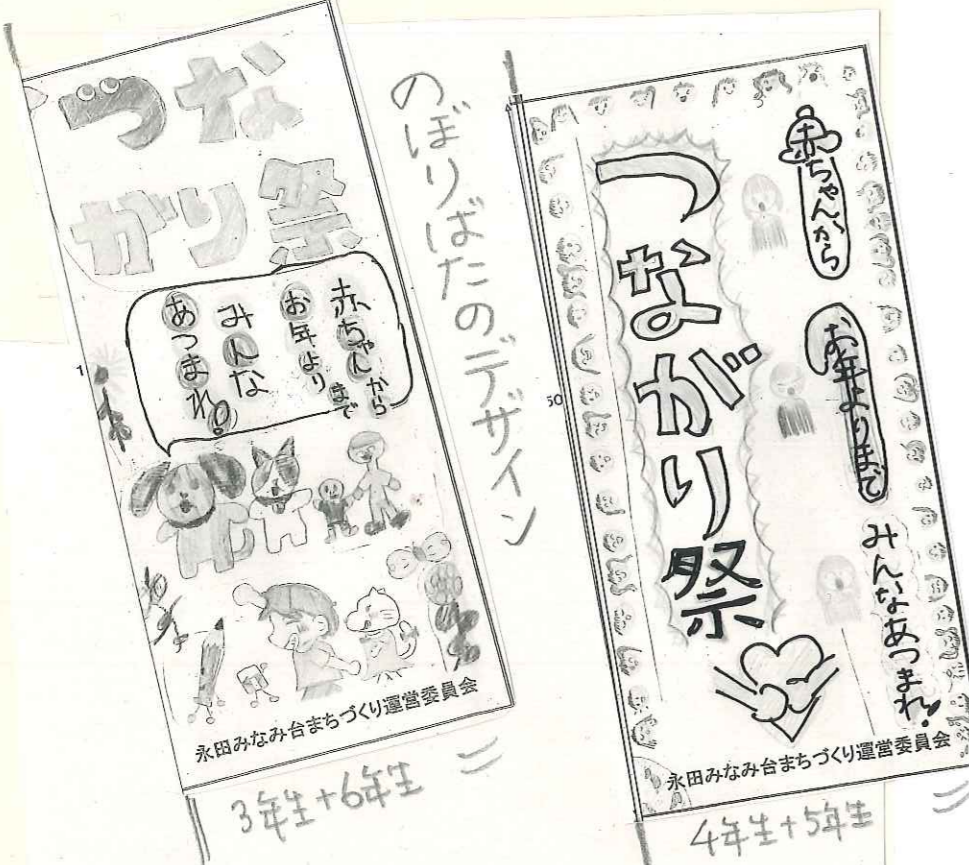 つな
がり祭
赤ちゃんから
お年よりまで
みんな
あつまれ!
永田みなみ台まちづくり運営委員会
3年生+6年生
のぼりばたのデザイン
つながり祭
赤ちゃんから
お年よりまで
みんなあつまれ!
永田みなみ台まちづくり運営委員会
4年生+5年生
50
1